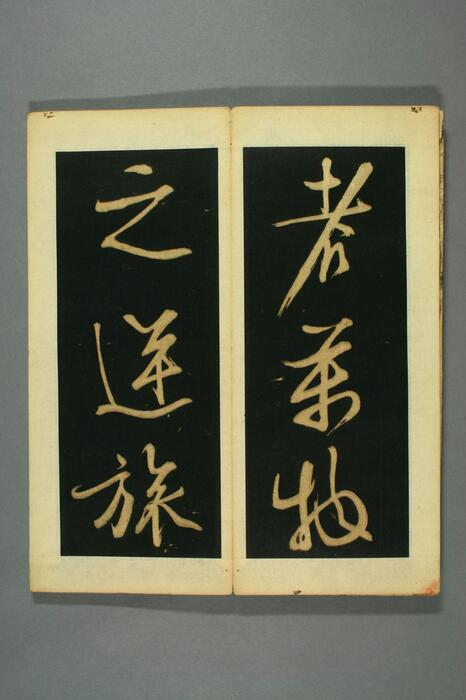 者萬物
之逆旅